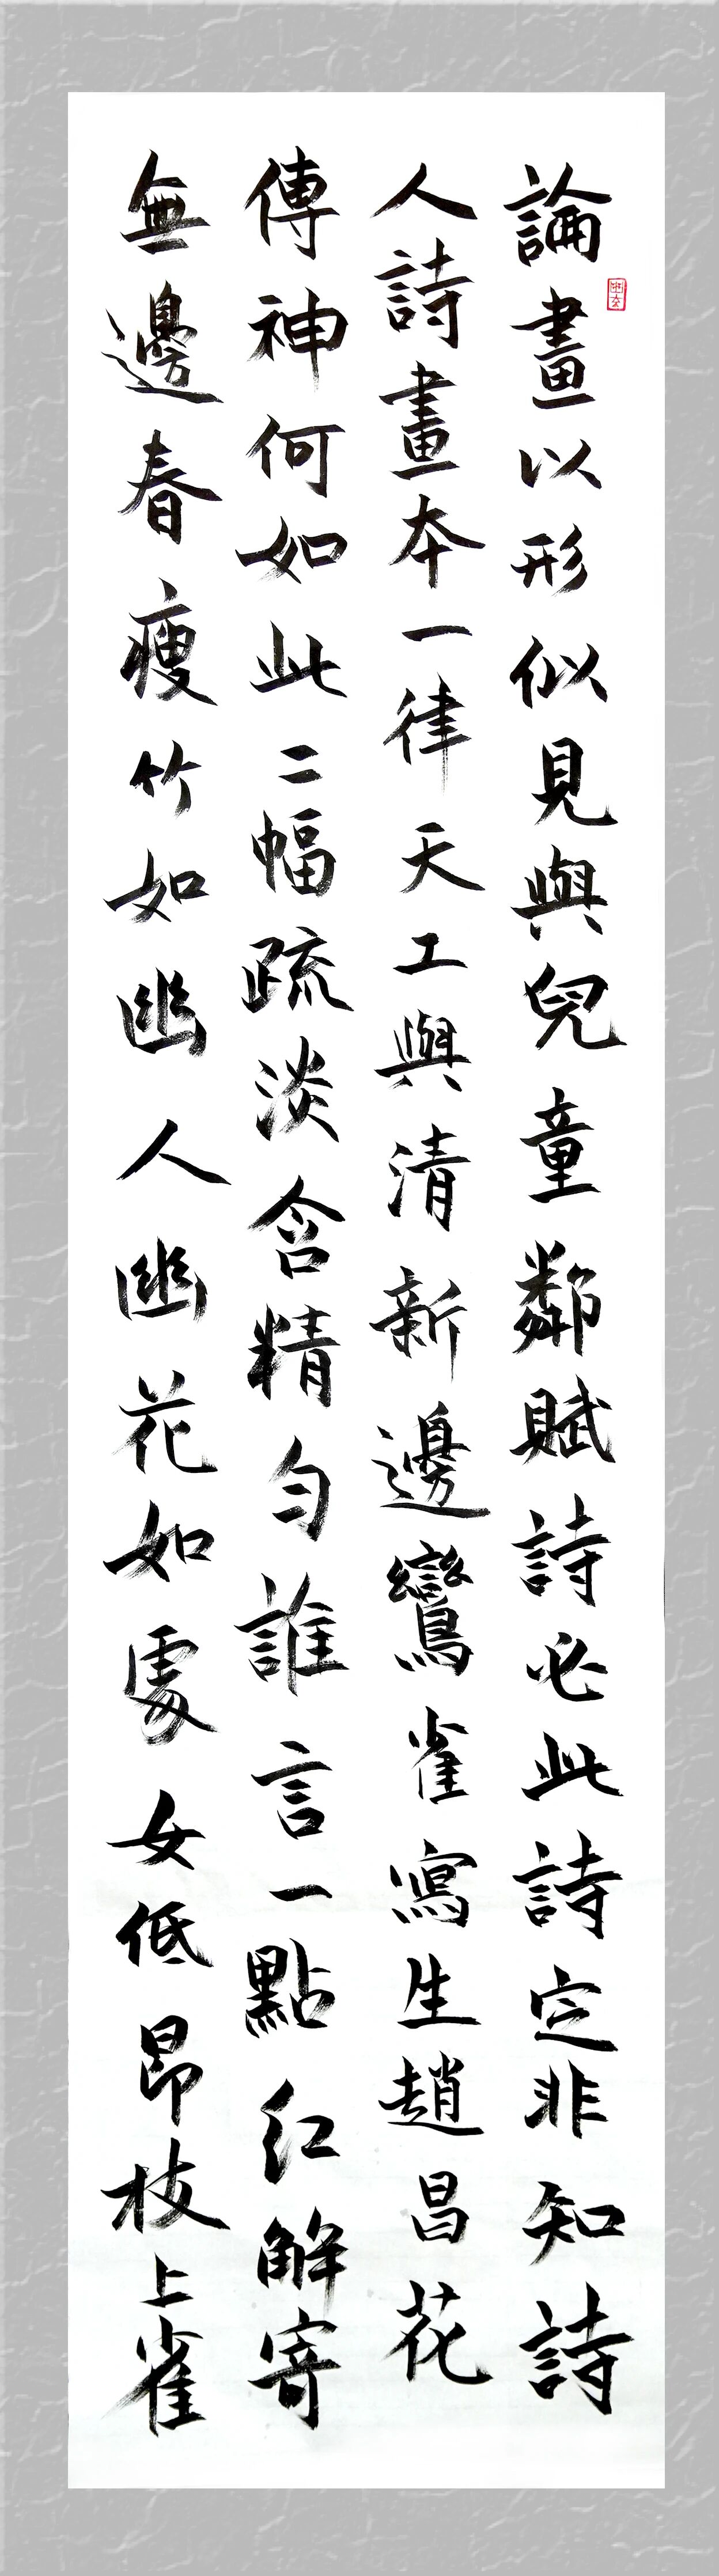 論畫以形似見與兒童鄰賦詩必此詩定非知詩
人詩畫本一律天工與清新邊鸞雀寫生趙昌花
傳神何如此二幅疏淡含精勻誰言一點紅解寄
無邊春瘦竹如幽人幽花如處女低昂枝上雀